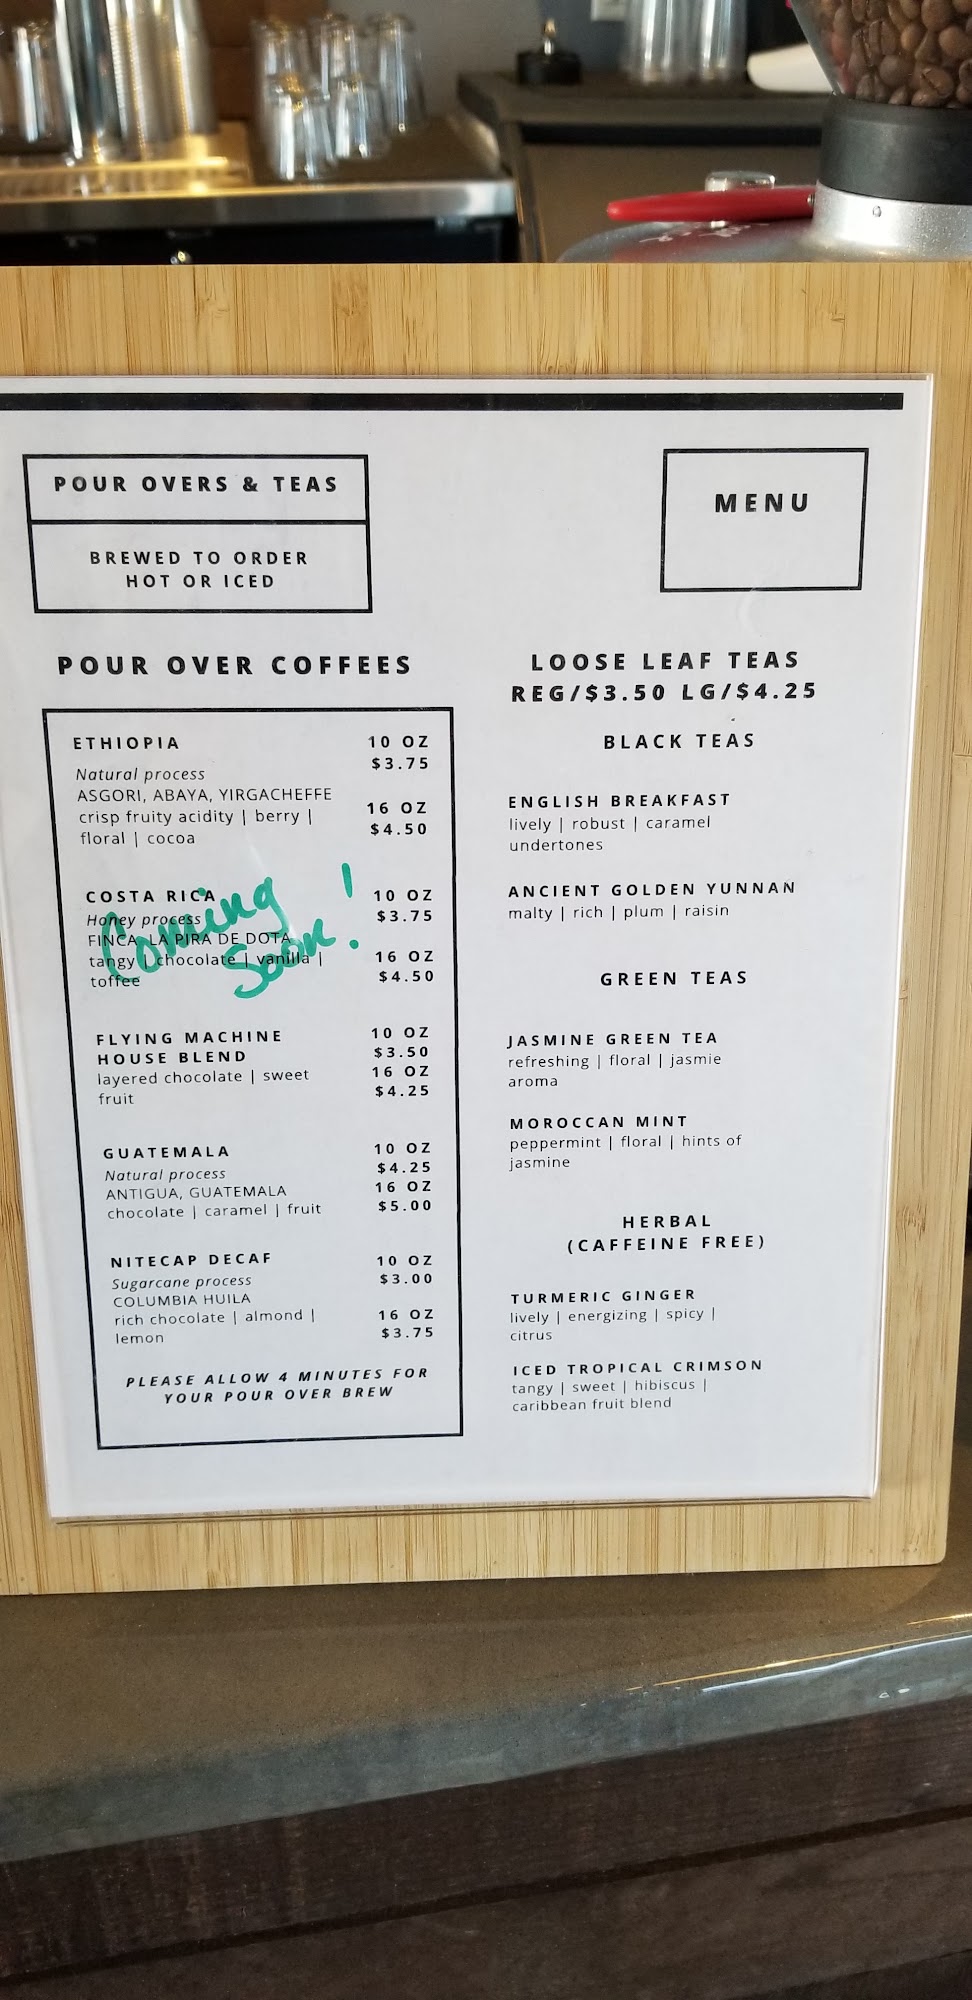 POUR OVERS & TEAS
BREWED TO ORDER
HOT OR ICED
MENU
POUR OVER COFFEES
ETHIOPIA
10 OZ
$3.75
Natural process
ASGORI, ABAYA, YIRGACHEFFE
crisp fruity acidity | berry |
floral | cocoa
16 OZ
$4.50
COSTA RICA
10 OZ
$3.75
Honey process
FINCA LA PIRA DE DOTA
tangy | chocolate | vanilla |
toffee
16 OZ
$4.50
Coming
Soon!
FLYING MACHINE
HOUSE BLEND
layered chocolate | sweet
fruit
10 OZ
$3.50
16 OZ
$4.25
GUATEMALA
Natural process
ANTIGUA, GUATEMALA
chocolate | caramel | fruit
10 OZ
$4.25
16 OZ
$5.00
NITECAP DECAF
Sugarcane process
COLUMBIA HUILA
rich chocolate | almond |
lemon
10 OZ
$3.00
16 OZ
$3.75
PLEASE ALLOW 4 MINUTES FOR
YOUR POUR OVER BREW
LOOSE LEAF TEAS
REG/$3.50 LG/$4.25
BLACK TEAS
ENGLISH BREAKFAST
lively | robust | caramel
undertones
ANCIENT GOLDEN YUNNAN
malty | rich | plum | raisin
GREEN TEAS
JASMINE GREEN TEA
refreshing | floral | jasmie
aroma
MOROCCAN MINT
peppermint | floral | hints of
jasmine
HERBAL
(CAFFEINE FREE)
TURMERIC GINGER
lively | energizing | spicy |
citrus
ICED TROPICAL CRIMSON
tangy | sweet | hibiscus |
caribbean fruit blend